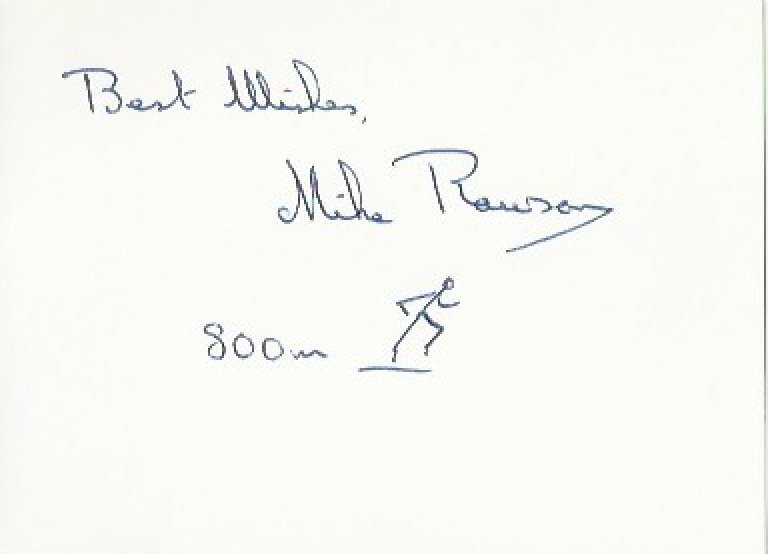 Best Wishes,
Mike Rawson
800m